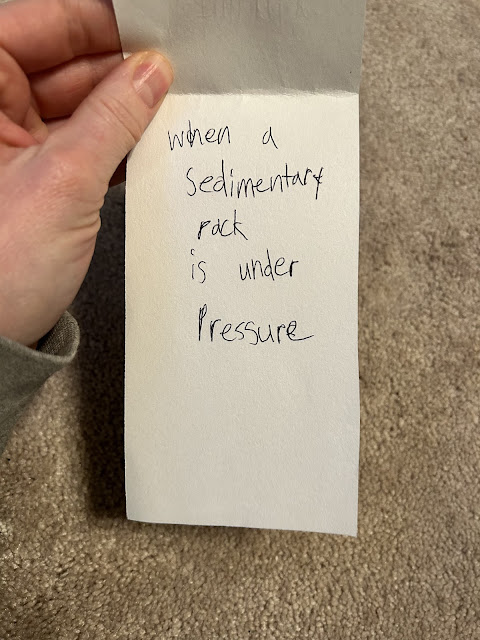 when a
Sedimentary
rock
is under
Pressure